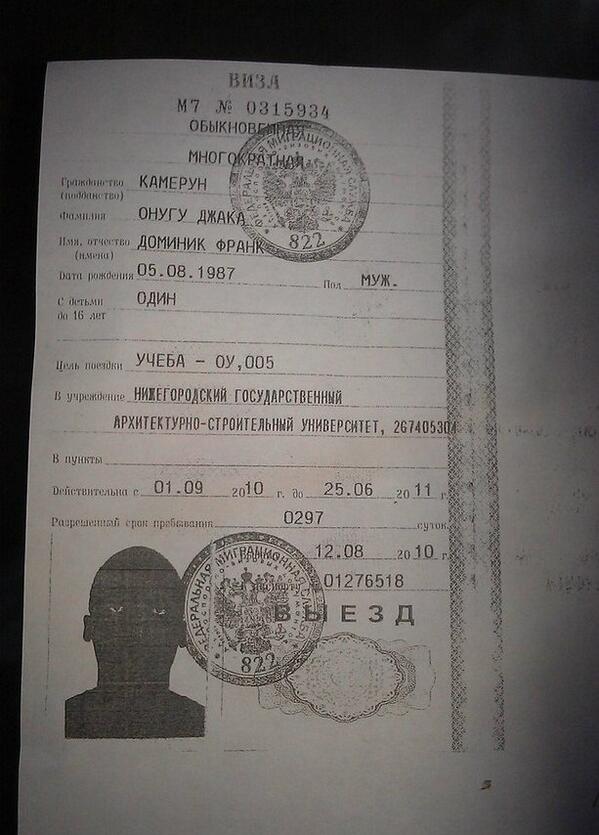 ВИЗА
М7 № 0315934
ОБЫКНОВЕННАЯ
МНОГОКРАТНАЯ
Гражданство (подданство) КАМЕРУН
Фамилия ОНУГУ ДЖАКА
Имя, отчество (имена) ДОМИНИК ФРАНК
Дата рождения 05.08.1987 Пол МУЖ.
С детьми до 16 лет ОДИН
Цель поездки УЧЕБА - ОУ,005
В учреждение НИЖЕГОРОДСКИЙ ГОСУДАРСТВЕННЫЙ
АРХИТЕКТУРНО-СТРОИТЕЛЬНЫЙ УНИВЕРСИТЕТ, 267405304
В пункты
Действительна с 01.09 2010 г. до 25.06 2011 г.
Разрешенный срок пребывания 0297 суток
12.08 2010 г.
01276518
ВЫЕЗД
ФЕДЕРАЛЬНАЯ МИГРАЦИОННАЯ СЛУЖБА
822
ФЕДЕРАЛЬНАЯ МИГРАЦИОННАЯ
822
5